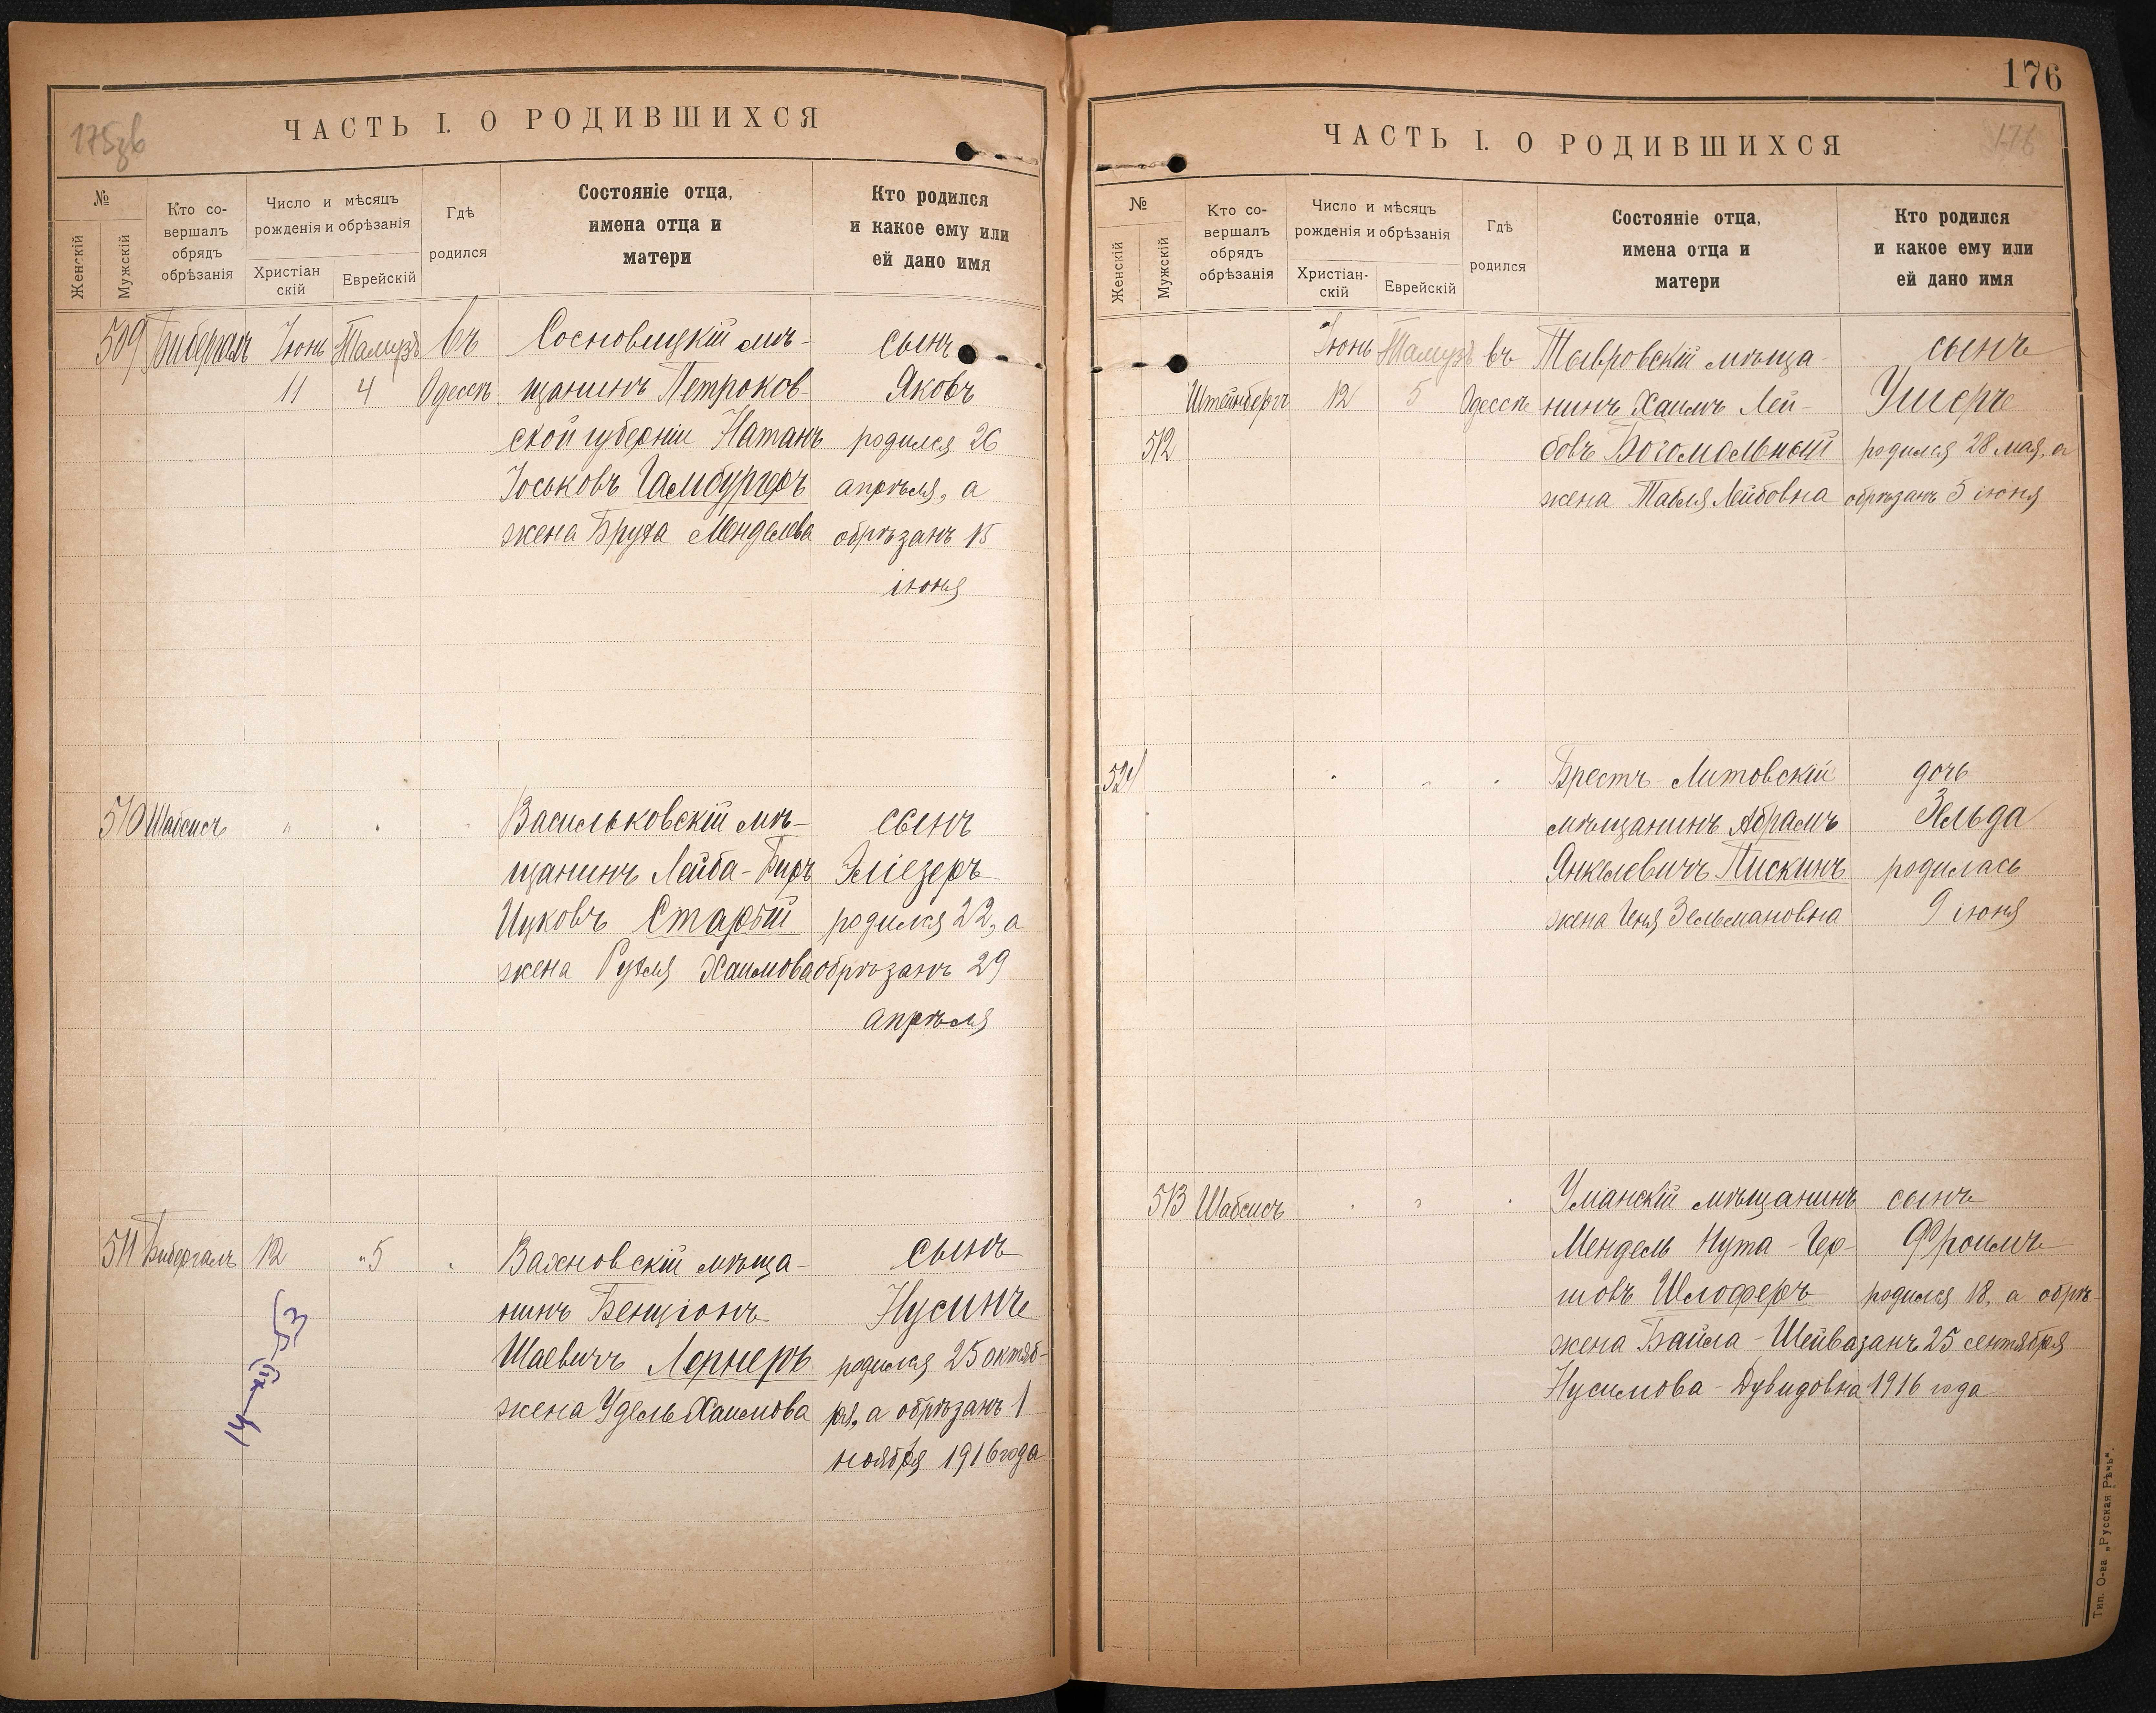 175зв
ЧАСТЬ I. О РОДИВШИХСЯ
№
Женскій
Мужскій
Кто со-
вершалъ
обрядъ
обрѣзанія
Число и мѣсяцъ
рожденія и обрѣзанія
Христіан
скій
Еврейскій
Гдѣ
родился
Состояніе отца,
имена отца и
матери
Кто родился
и какое ему или
ей дано имя
509 Бибергалъ Іюнь Тамузъ въ Сосновицкій мѣ- сынъ
11 4 Одессѣ щанинъ Петроков- Яковъ
ской губерніи Натанъ родился 26
Іоськовъ Гамбургеръ апрѣля, а
жена Бруха Менделева обрѣзанъ 15
іюня
510 Шабсисъ " " " Васильковскій мѣ- сынъ
щанинъ Лейба-Биръ Эліезеръ
Ицковъ Старый родился 22, а
жена Рухля Хаимова обрѣзанъ 29
апрѣля
511 Бибергалъ 12 " 5 " Вахновскій мѣща- сынъ
нинъ Бенціонъ Нусинъ
Шаевичъ Лернеръ родился 25 октяб-
жена Удель Хаимова ря, а обрѣзанъ 1
ноября 1916 года
14-XII-53
176
176
ЧАСТЬ I. О РОДИВШИХСЯ
№
Женскій
Мужскій
Кто со-
вершалъ
обрядъ
обрѣзанія
Число и мѣсяцъ
рожденія и обрѣзанія
Христіан-
скій
Еврейскій
Гдѣ
родился
Состояніе отца,
имена отца и
матери
Кто родился
и какое ему или
ей дано имя
Іюнь Тамузъ въ Тывровскій мѣща- сынъ
Штейнбергъ 12 5 Одессѣ нинъ Хаимъ Лей- Ушеръ
512 бовъ Богомольный родился 28 мая, а
жена Табля Лейбовна обрѣзанъ 5 іюня
521 " " " Брестъ-Литовскій дочь
мѣщанинъ Абрамъ Зельда
Янкелевичъ Пискинъ родилась
жена Геня Зельмановна 9 іюня
513 Шабсисъ " " " Уманскій мѣщанинъ сынъ
Мендель Нута-Гер- Фроимъ
шовъ Шлоферъ родился 18, а обрѣ-
жена Байла-Шейва занъ 25 сентября
Нусимова-Дувидовна 1916 года
Тип. О-ва „Русская Рѣчь“.